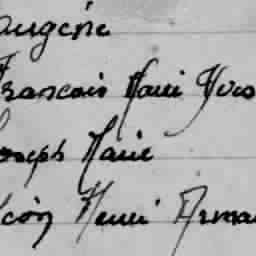 Eugène
Francois Marie Yves
Joseph Marie
Léon Henri Arma